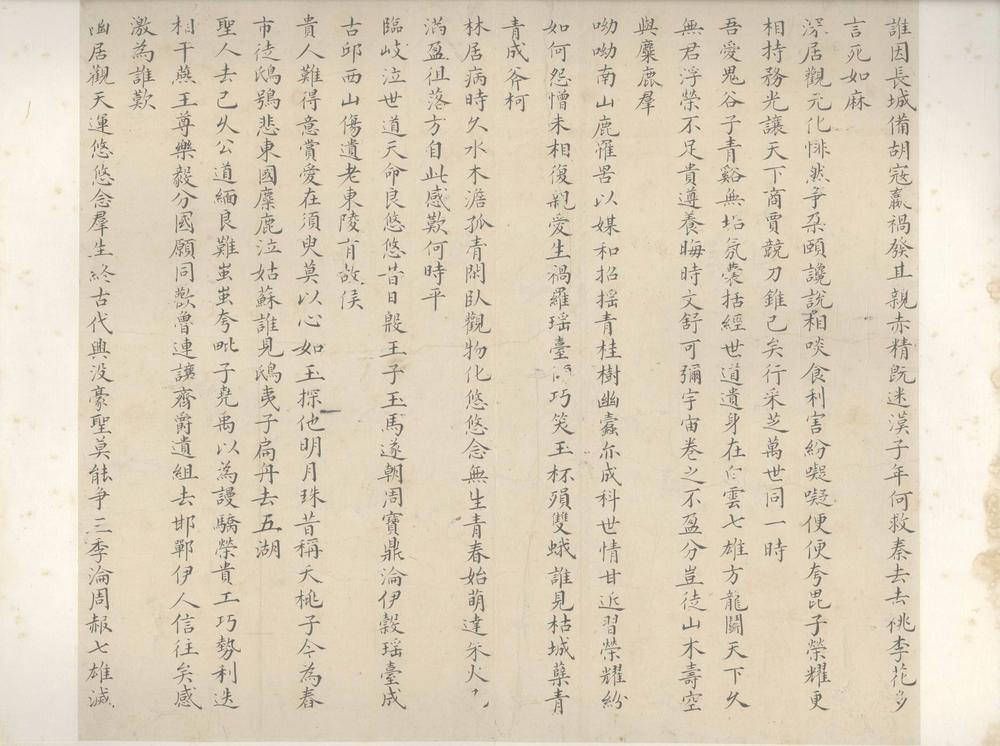 誰因長城備胡寇嬴禍發其親赤精既迷漢子年何救秦去去桃李花多
言死如麻
深居觀元化悱然争朶頤讒說相啖食利害紛㘈㘈便便夸毘子榮耀更
相持務光讓天下商賈競刀錐已矣行采芝萬世同一時
吾愛鬼谷子青谿無垢氛囊括經世道遺身在白雲七雄方龍鬭天下久
無君浮榮不足貴遵養晦時文舒可彌宇宙卷之不盈分豈徒山木壽空
與麋鹿羣
呦呦南山鹿罹罟以媒和招摇青桂樹幽蠹亦成科世情甘近習榮耀紛
如何怨憎未相復親愛生禍羅瑶臺巧笑玉杯殞雙蛾誰見枯城蘖青
青成斧柯
林居病時久水木澹孤青閑臥觀物化悠悠念無生青春始萌達朱火
滿盈徂落方自此感歎何時平
臨岐泣世道天命良悠悠昔日殷王子玉馬遂朝周寶鼎淪伊穀瑶臺成
古邱西山傷遺老東陵有故侯
貴人難得意賞愛在須臾莫以心如玉探他明月珠昔稱夭桃子今為舂
市徒鴟鴞悲東國麋鹿泣姑蘇誰見鴟夷子扁舟去五湖
聖人去已久公道緬良難蚩蚩夸毗子堯禹以為謾驕榮貴工巧勢利迭
相干燕王尊樂毅分國願同歡魯連讓齊爵遺組去邯鄲伊人信往矣感
激為誰歎
幽居觀天運悠悠念羣生終古代興没豪聖莫能争三季淪周赧七雄滅